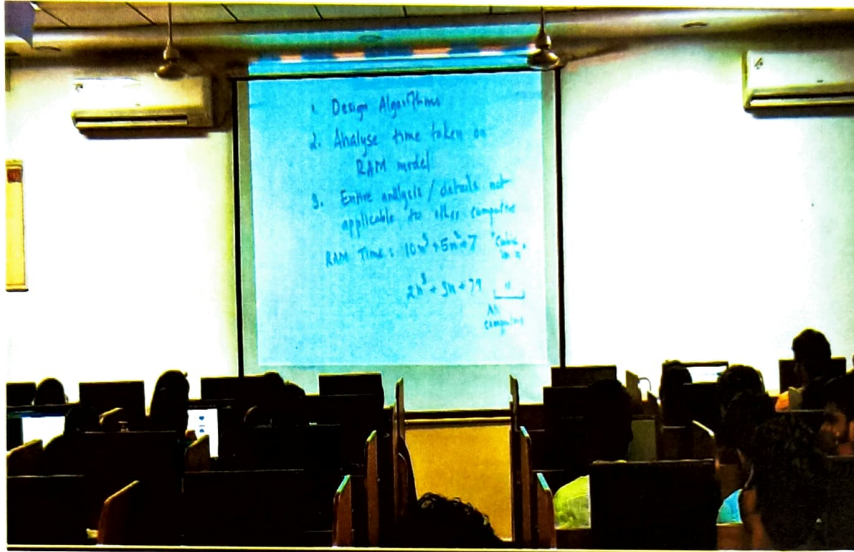 1. Design Algorithms
2. Analyse time taken on
RAM model
3. Entire analysis / details not
applicable to other computers
RAM Time: 10n³+5n²+7 "Cubic
in n"
2n³+3n+79 "
All
computers